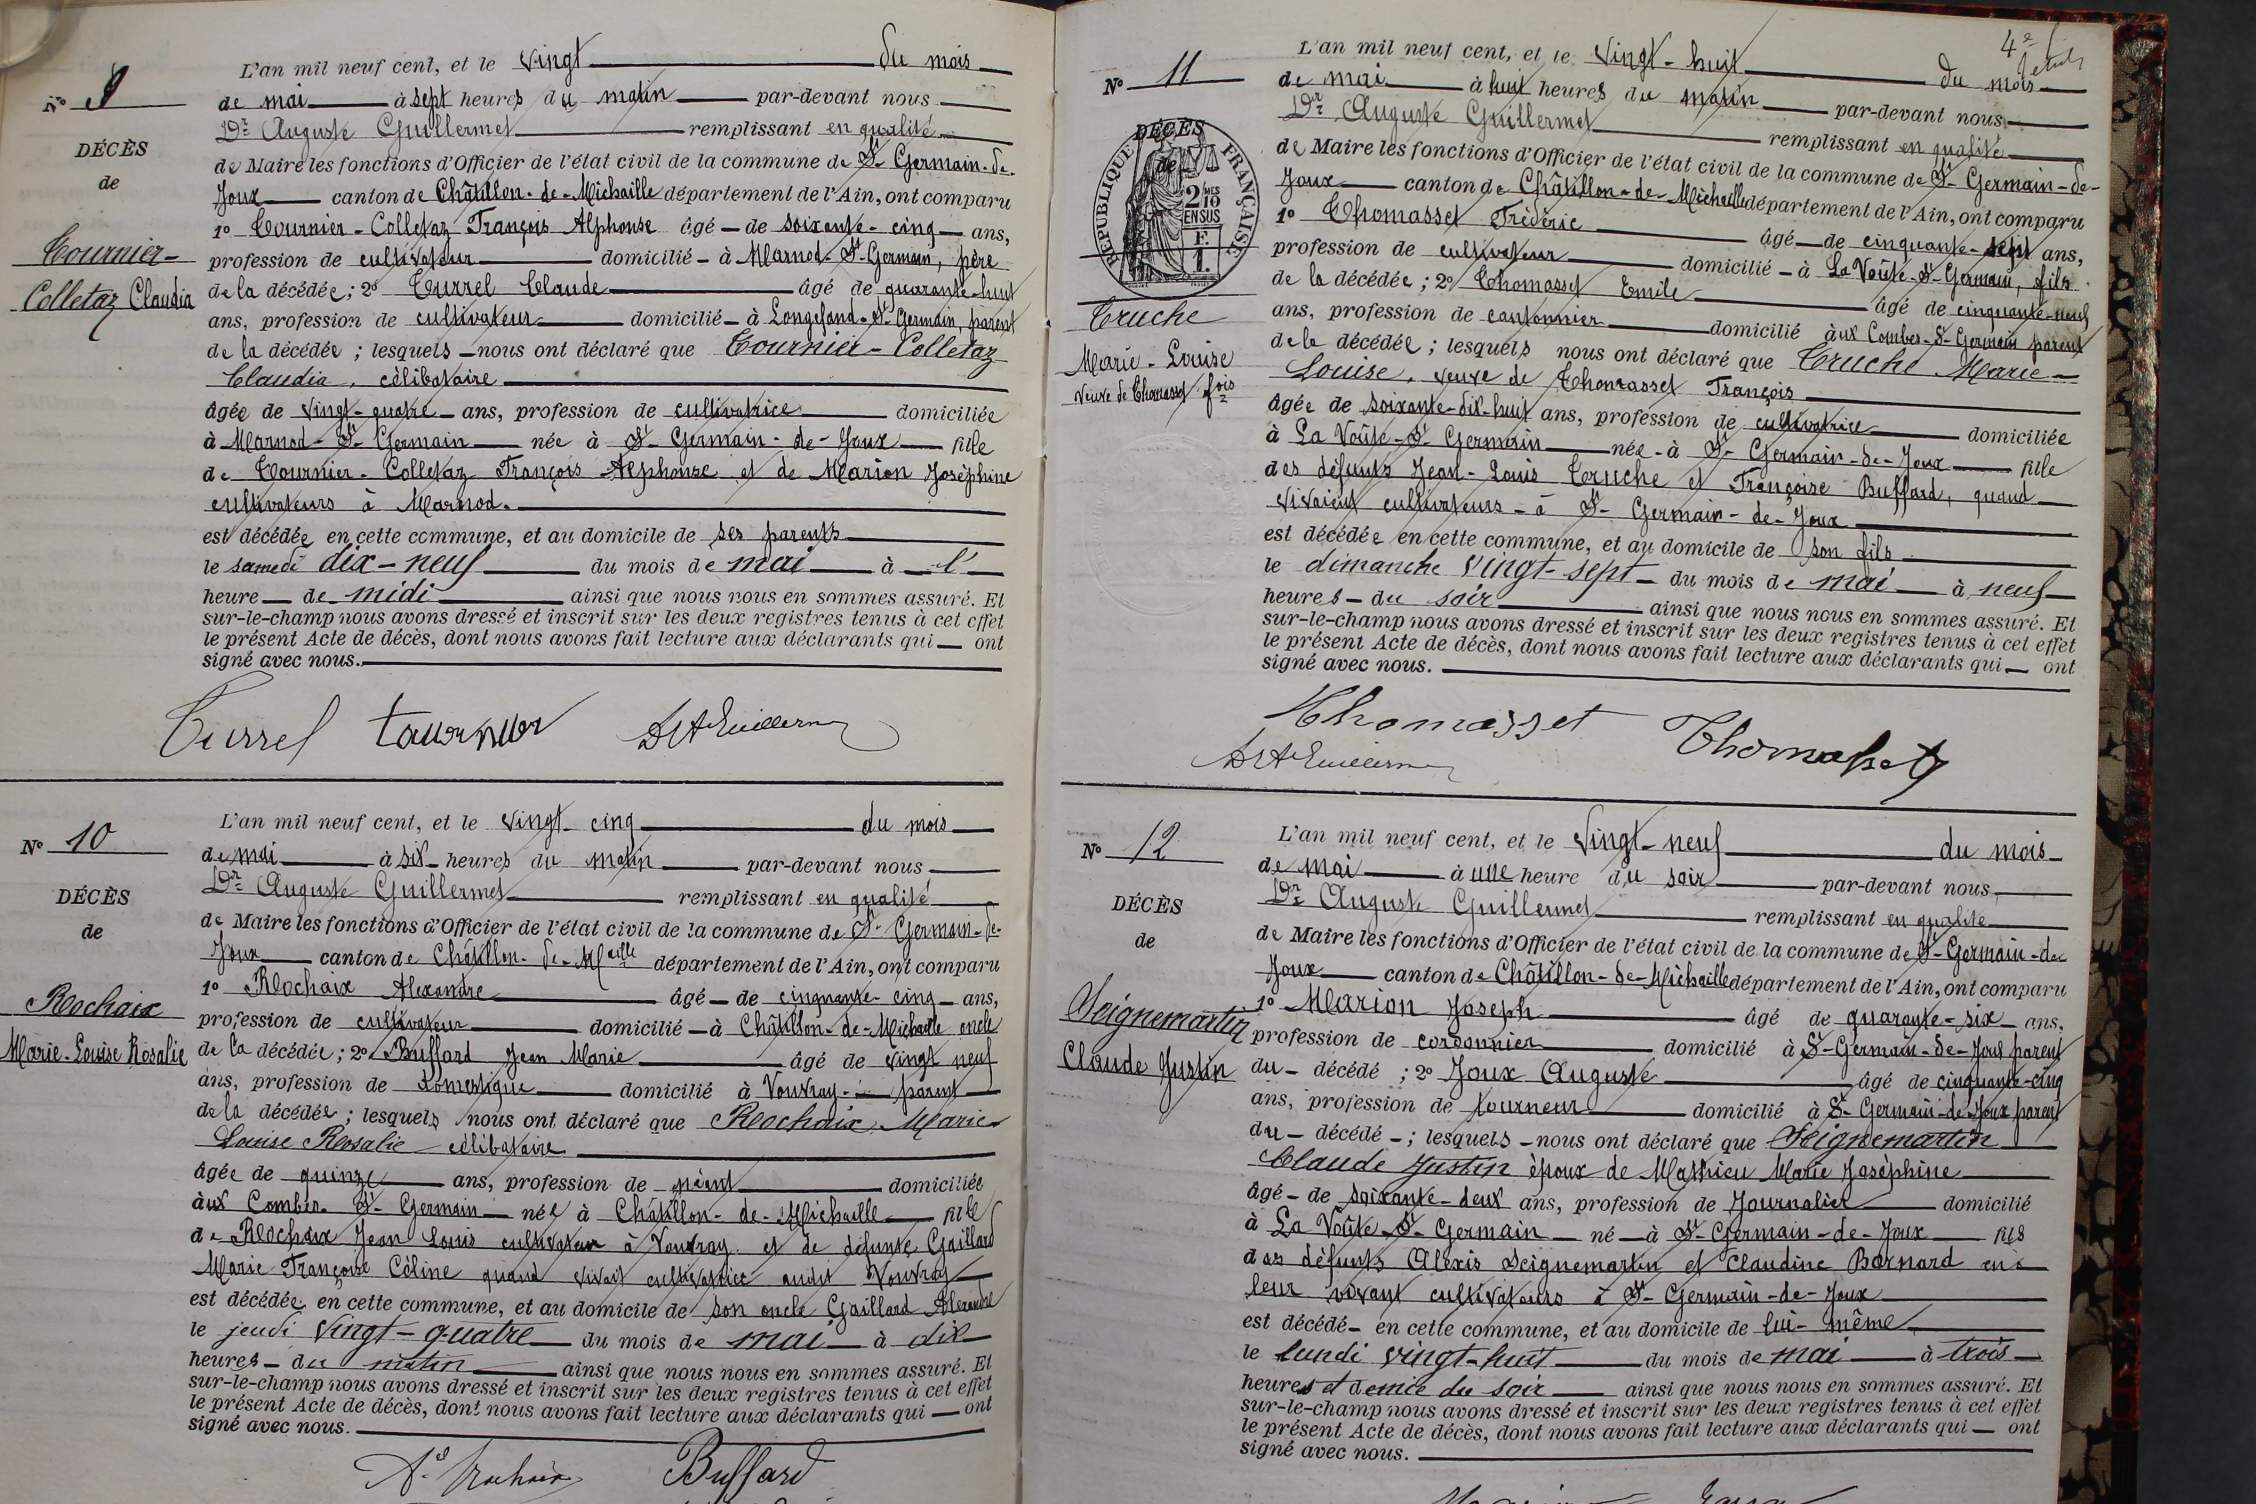 N° 9
DÉCÈS
de
Tournier-
Colletaz Claudia
L'an mil neuf cent, et le vingt du mois
de mai à sept heures du matin par-devant nous
Dr Auguste Guillermet remplissant en qualité
de Maire les fonctions d'Officier de l'état civil de la commune de St Germain-de-
Joux canton de Châtillon-de-Michaille département de l'Ain, ont comparu
1° Tournier-Colletaz François Alphonse âgé de soixante-cinq ans,
profession de cultivateur domicilié à Marnod-St Germain, père
de la décédée; 2° Turrel Claude âgé de quarante-huit
ans, profession de cultivateur domicilié à Longefand-St Germain, parent
de la décédée; lesquels nous ont déclaré que Tournier-Colletaz
Claudia, célibataire
âgée de vingt-quatre ans, profession de cultivatrice domiciliée
à Marnod-St Germain née à St Germain-de-Joux fille
de Tournier-Colletaz François Alphonse et de Marion Joséphine
cultivateurs à Marnod.
est décédée en cette commune, et au domicile de ses parents
le samedi dix-neuf du mois de mai à l'
heure de midi ainsi que nous nous en sommes assuré. Et
sur-le-champ nous avons dressé et inscrit sur les deux registres tenus à cet effet
le présent Acte de décès, dont nous avons fait lecture aux déclarants qui ont
signé avec nous.
Turrel Tournier Dr A Guillermet
N° 10
DÉCÈS
de
Rochaix
Marie-Louise Rosalie
L'an mil neuf cent, et le vingt-cinq du mois
de mai à six heures du matin par-devant nous
Dr Auguste Guillermet remplissant en qualité
de Maire les fonctions d'Officier de l'état civil de la commune de St Germain-de-
Joux canton de Châtillon-de-Maille département de l'Ain, ont comparu
1° Rochaix Alexandre âgé de cinquante-cinq ans,
profession de cultivateur domicilié à Châtillon-de-Michaille oncle
de la décédée; 2° Buffard Jean Marie âgé de vingt neuf
ans, profession de domestique domicilié à Vouvray parent
de la décédée; lesquels nous ont déclaré que Rochaix Marie
Louise Rosalie célibataire
âgée de quinze ans, profession de néant domiciliée
aux Combes St Germain née à Châtillon-de-Michaille fille
de Rochaix Jean Louis cultivateur à Vouvray et de défunte Gaillard
Marie Françoise Céline quand vivait cultivatrice audit Vouvray
est décédée en cette commune, et au domicile de son oncle Gaillard Alexandre
le jeudi vingt-quatre du mois de mai à dix
heures du matin ainsi que nous nous en sommes assuré. Et
sur-le-champ nous avons dressé et inscrit sur les deux registres tenus à cet effet
le présent Acte de décès, dont nous avons fait lecture aux déclarants qui ont
signé avec nous.
Ae Rochaix Buffard
4e
N° 11
DÉCÈS
de
RÉPUBLIQUE FRANÇAISE
2 MES
10
EN SUS
F.
1.
Truche
Marie-Louise
Veuve de Thomasset fois
L'an mil neuf cent, et le vingt-huit du mois
de mai à huit heures du matin par-devant nous
Dr Auguste Guillermet remplissant en qualité
de Maire les fonctions d'Officier de l'état civil de la commune de St Germain-de-
Joux canton de Châtillon-de-Michaille département de l'Ain, ont comparu
1° Thomasset Frédéric âgé de cinquante-sept ans,
profession de cultivateur domicilié à La Voûte-St Germain, fils
de la décédée; 2° Thomasset Emile âgé de cinquante-neuf
ans, profession de cantonnier domicilié aux Combes-St Germain parent
de la décédée; lesquels nous ont déclaré que Truche Marie-
Louise, veuve de Thomasset François
âgée de soixante-dix-huit ans, profession de cultivatrice domiciliée
à La Voûte-St Germain née à St Germain-de-Joux fille
des défunts Jean-Louis Truche et Françoise Buffard, quand
vivaient cultivateurs à St Germain-de-Joux
est décédée en cette commune, et au domicile de son fils
le dimanche vingt-sept du mois de mai à neuf
heures du soir ainsi que nous nous en sommes assuré. Et
sur-le-champ nous avons dressé et inscrit sur les deux registres tenus à cet effet
le présent Acte de décès, dont nous avons fait lecture aux déclarants qui ont
signé avec nous.
Thomasset Thomasset
Dr A Guillermet
N° 12
DÉCÈS
de
Seignemartin
Claude Justin
L'an mil neuf cent, et le vingt-neuf du mois
de mai à une heure du soir par-devant nous
Dr Auguste Guillermet remplissant en qualité
de Maire les fonctions d'Officier de l'état civil de la commune de St Germain-de
Joux canton de Châtillon-de-Michaille département de l'Ain, ont comparu
1° Marion Joseph âgé de quarante-six ans,
profession de cordonnier domicilié à St Germain-de-Joux parent
du décédé; 2° Joux Auguste âgé de cinquante-cinq
ans, profession de tourneur domicilié à St Germain-de-Joux parent
du décédé; lesquels nous ont déclaré que Seignemartin
Claude Justin époux de Mathieu Marie Joséphine
âgé de soixante-deux ans, profession de Journalier domicilié
à La Voûte-St Germain né à St Germain-de-Joux fils
des défunts Alexis Seignemartin et Claudine Barnard en
leur vivant cultivateurs à St Germain-de-Joux
est décédé en cette commune, et au domicile de lui-même
le lundi vingt-huit du mois de mai à trois
heures et demie du soir ainsi que nous nous en sommes assuré. Et
sur-le-champ nous avons dressé et inscrit sur les deux registres tenus à cet effet
le présent Acte de décès, dont nous avons fait lecture aux déclarants qui ont
signé avec nous.